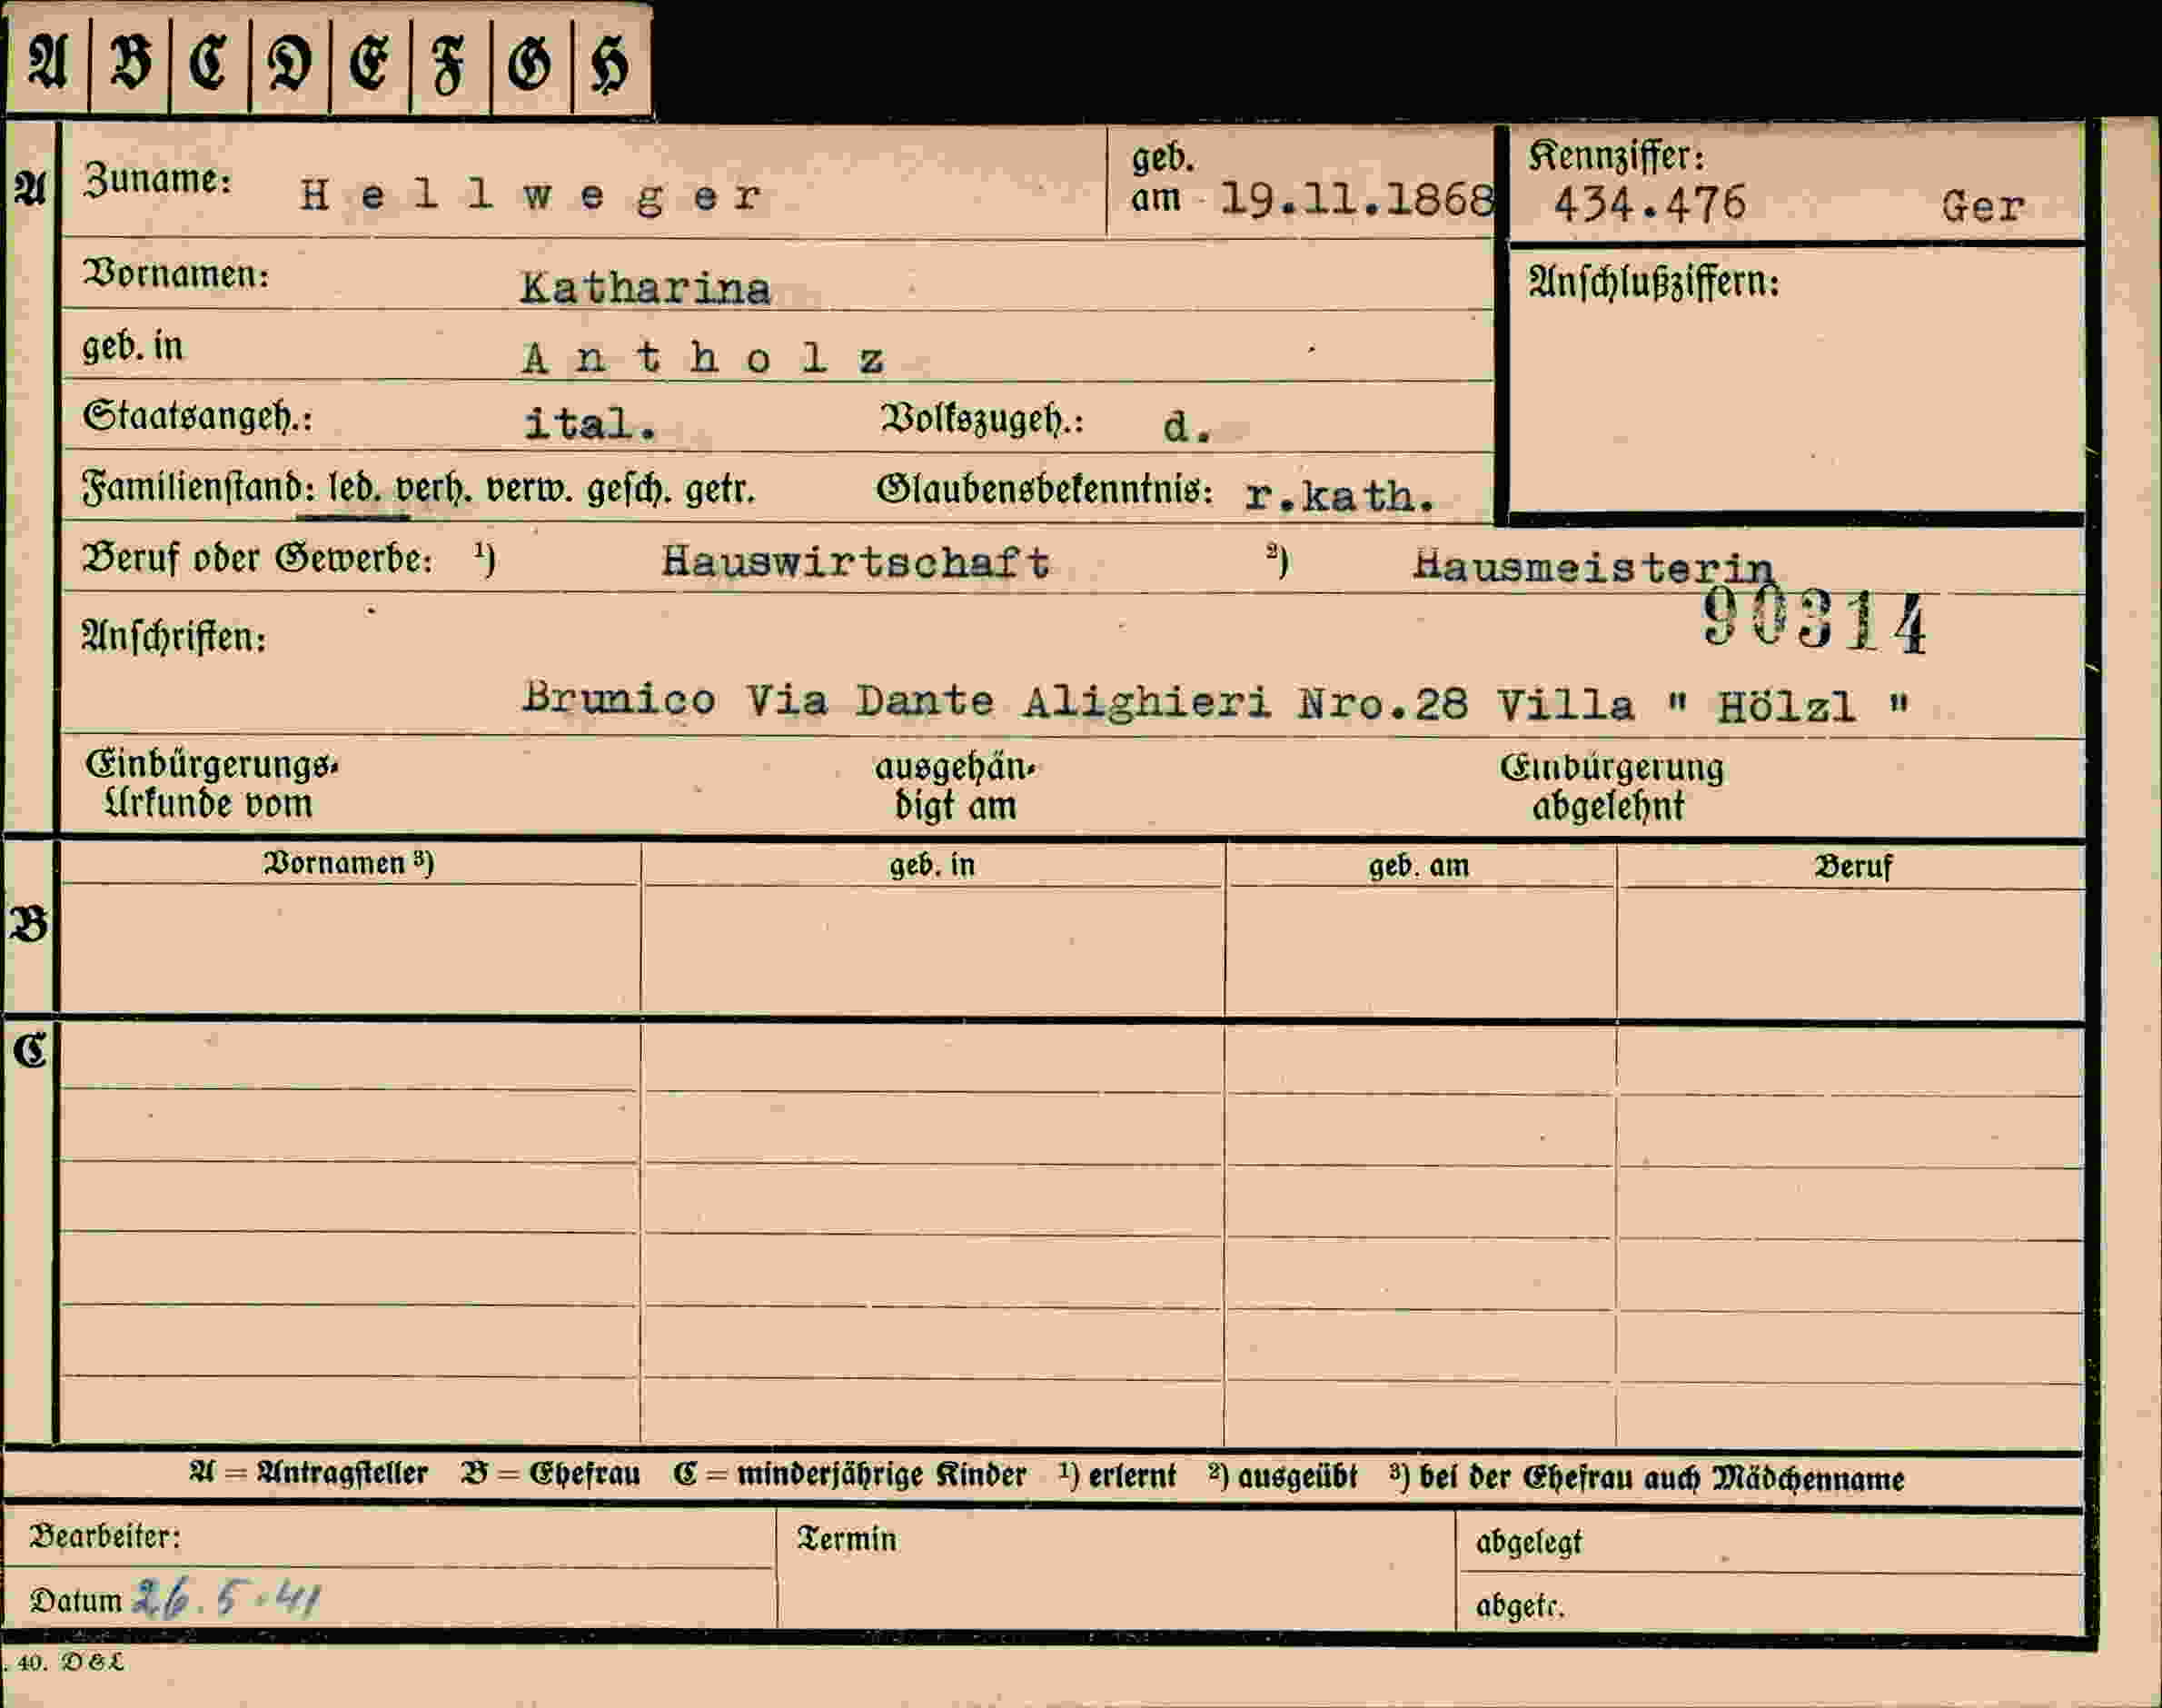 A B C D E F G H
A Zuname: Hellweger geb. am 19.11.1868 Kennziffer: 434.476 Ger
Vornamen: Katharina Anschlußziffern:
geb. in Antholz
Staatsangeh.: ital. Volkszugeh.: d.
Familienstand: led. verh. verw. gesch. getr. Glaubensbekenntnis: r.kath.
Beruf oder Gewerbe: ¹) Hauswirtschaft ²) Hausmeisterin
90314
Anschriften:
Brunico Via Dante Alighieri Nro.28 Villa " Hölzl "
Einbürgerungs- ausgehän- Einbürgerung
Urkunde vom digt am abgelehnt
Vornamen ³) geb. in geb. am Beruf
B
C
A = Antragsteller B = Ehefrau C = minderjährige Kinder ¹) erlernt ²) ausgeübt ³) bei der Ehefrau auch Mädchenname
Bearbeiter: Termin abgelegt
Datum 26.5.41 abgetr.
. 40. D&L